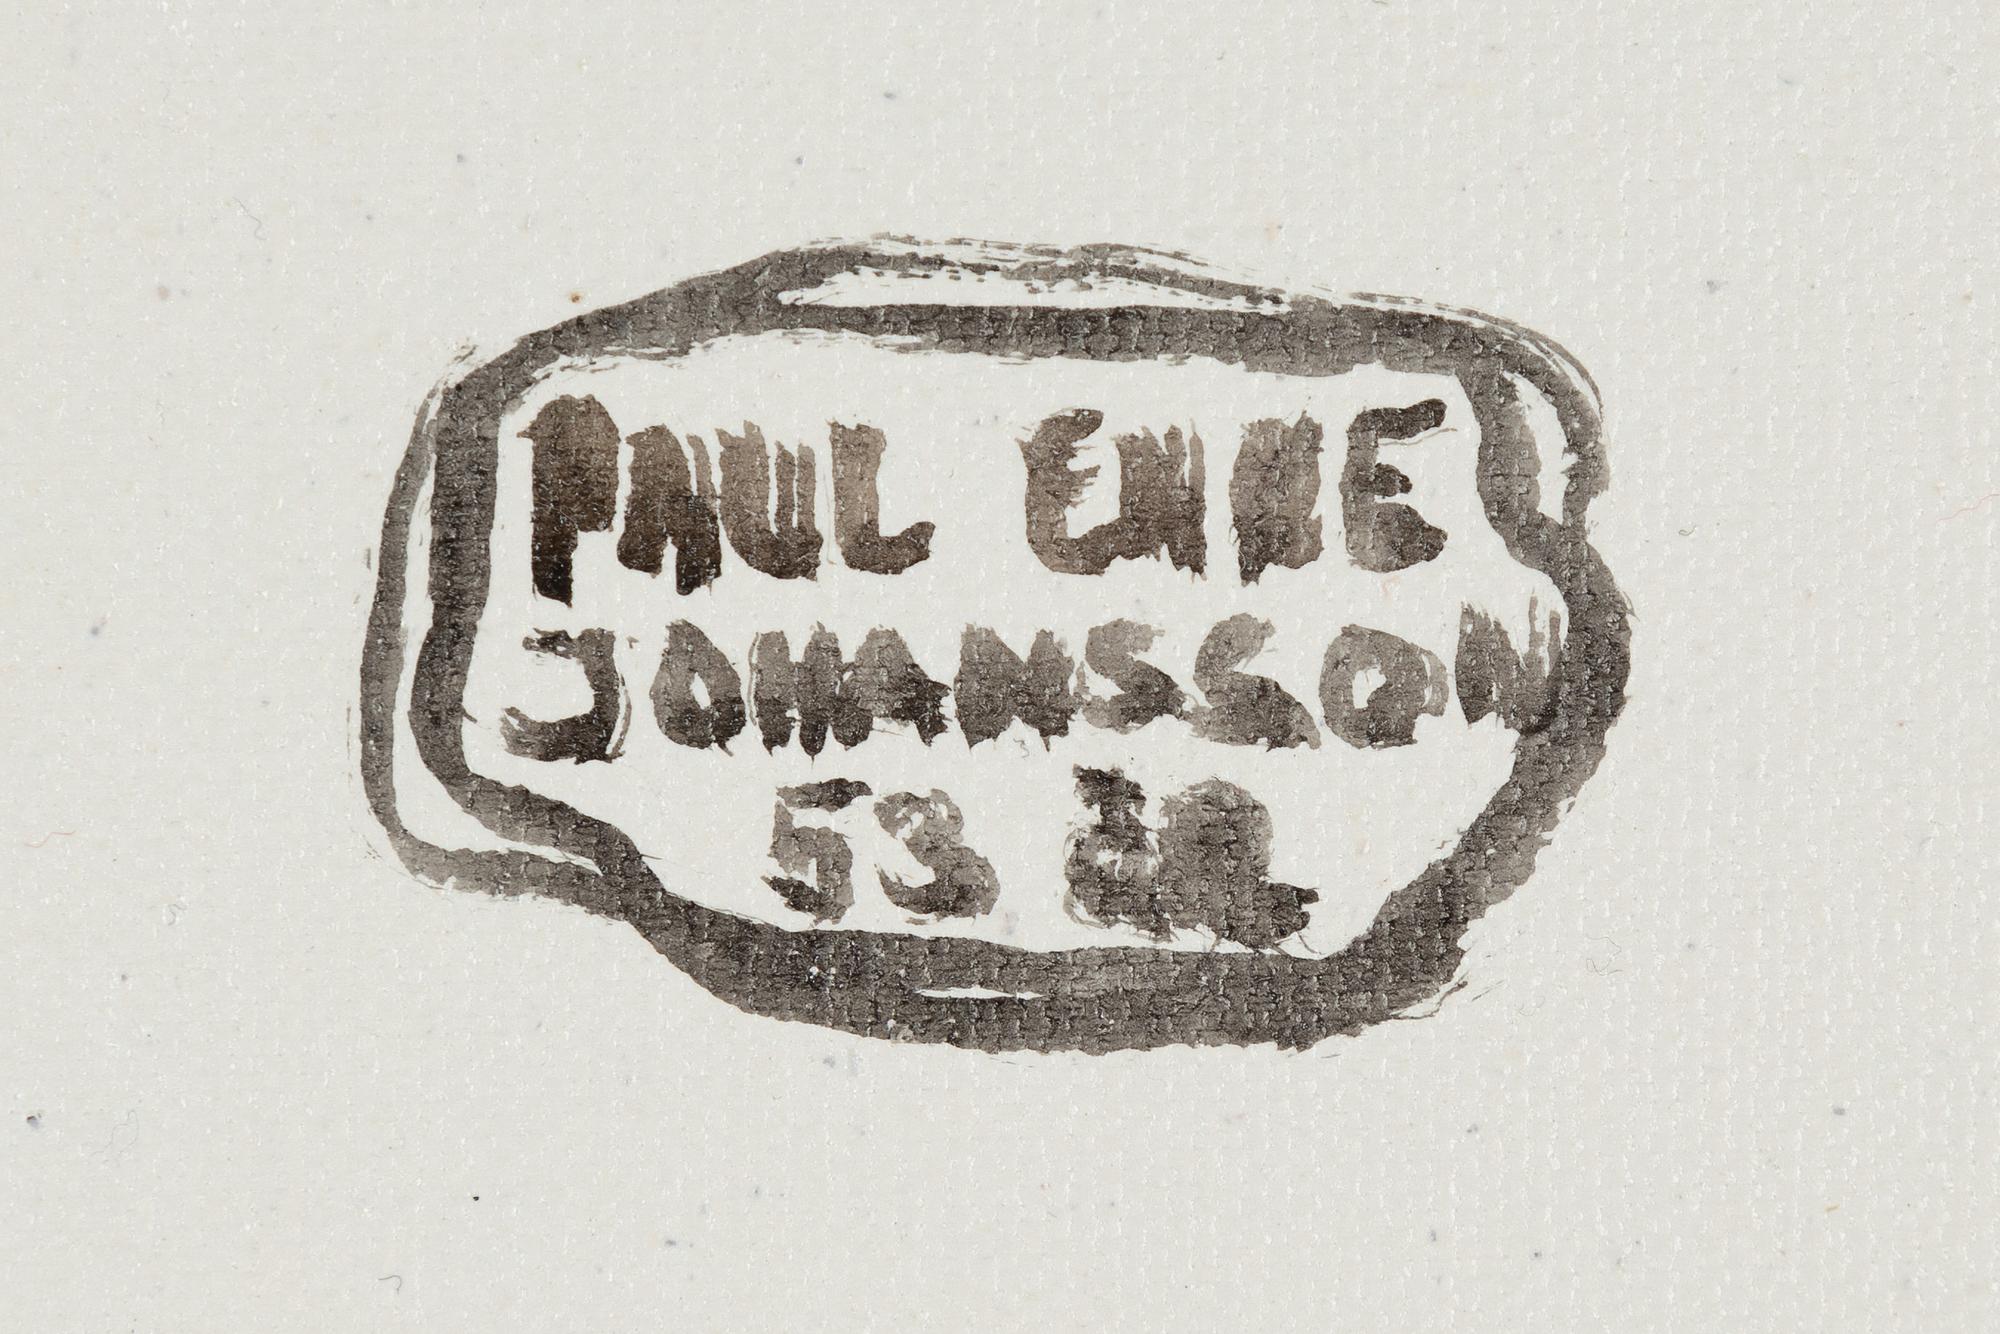 PAUL ENNE
JOHANSSON
53 ÅR